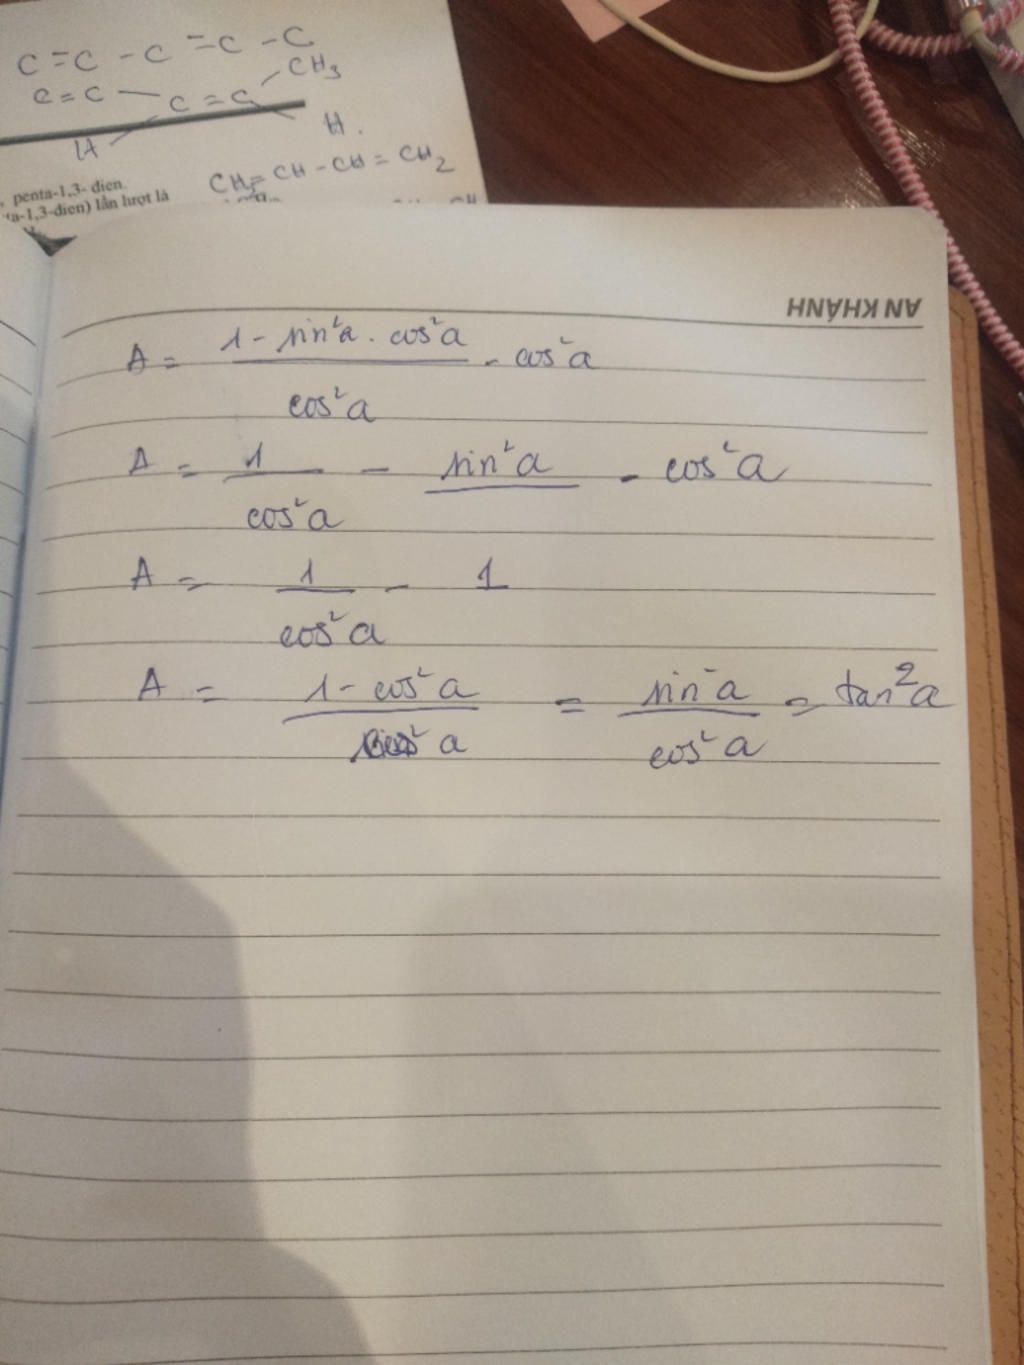 C = C - C = C - C
C = C - C = C
CH₃
H
H.
CH₂ = CH - CH = CH₂
, penta-1,3- đien.
ta-1,3-đien) lần lượt là
AN KHÁNH
A = (1 - sin²a . cos²a)/(cos²a) - cos²a
A = 1/(cos²a) - sin²a - cos²a
A = 1/(cos²a) - 1
A = (1 - cos²a)/(cos²a) = (sin²a)/(cos²a) = tan²a